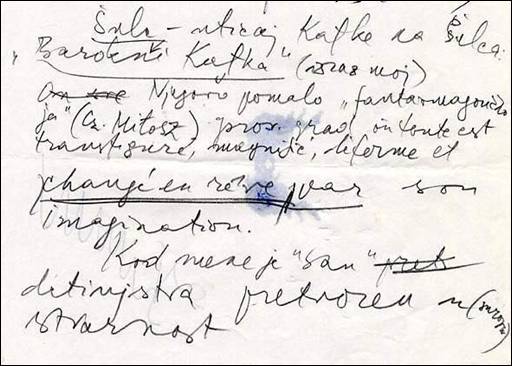 Šulc – uticaj Kafke na Šulca.
„Barokni Kafka" (izraz moj)
Njegovo pomalo „fantazmagorično
ja" (Cz. Miłosz) prov. grad, où tout est
transfiguré, magnifié, déformé et
changé en rêve par son
imagination.
Kod mene je "san"
detinjstva pretvoren u
stvarnost